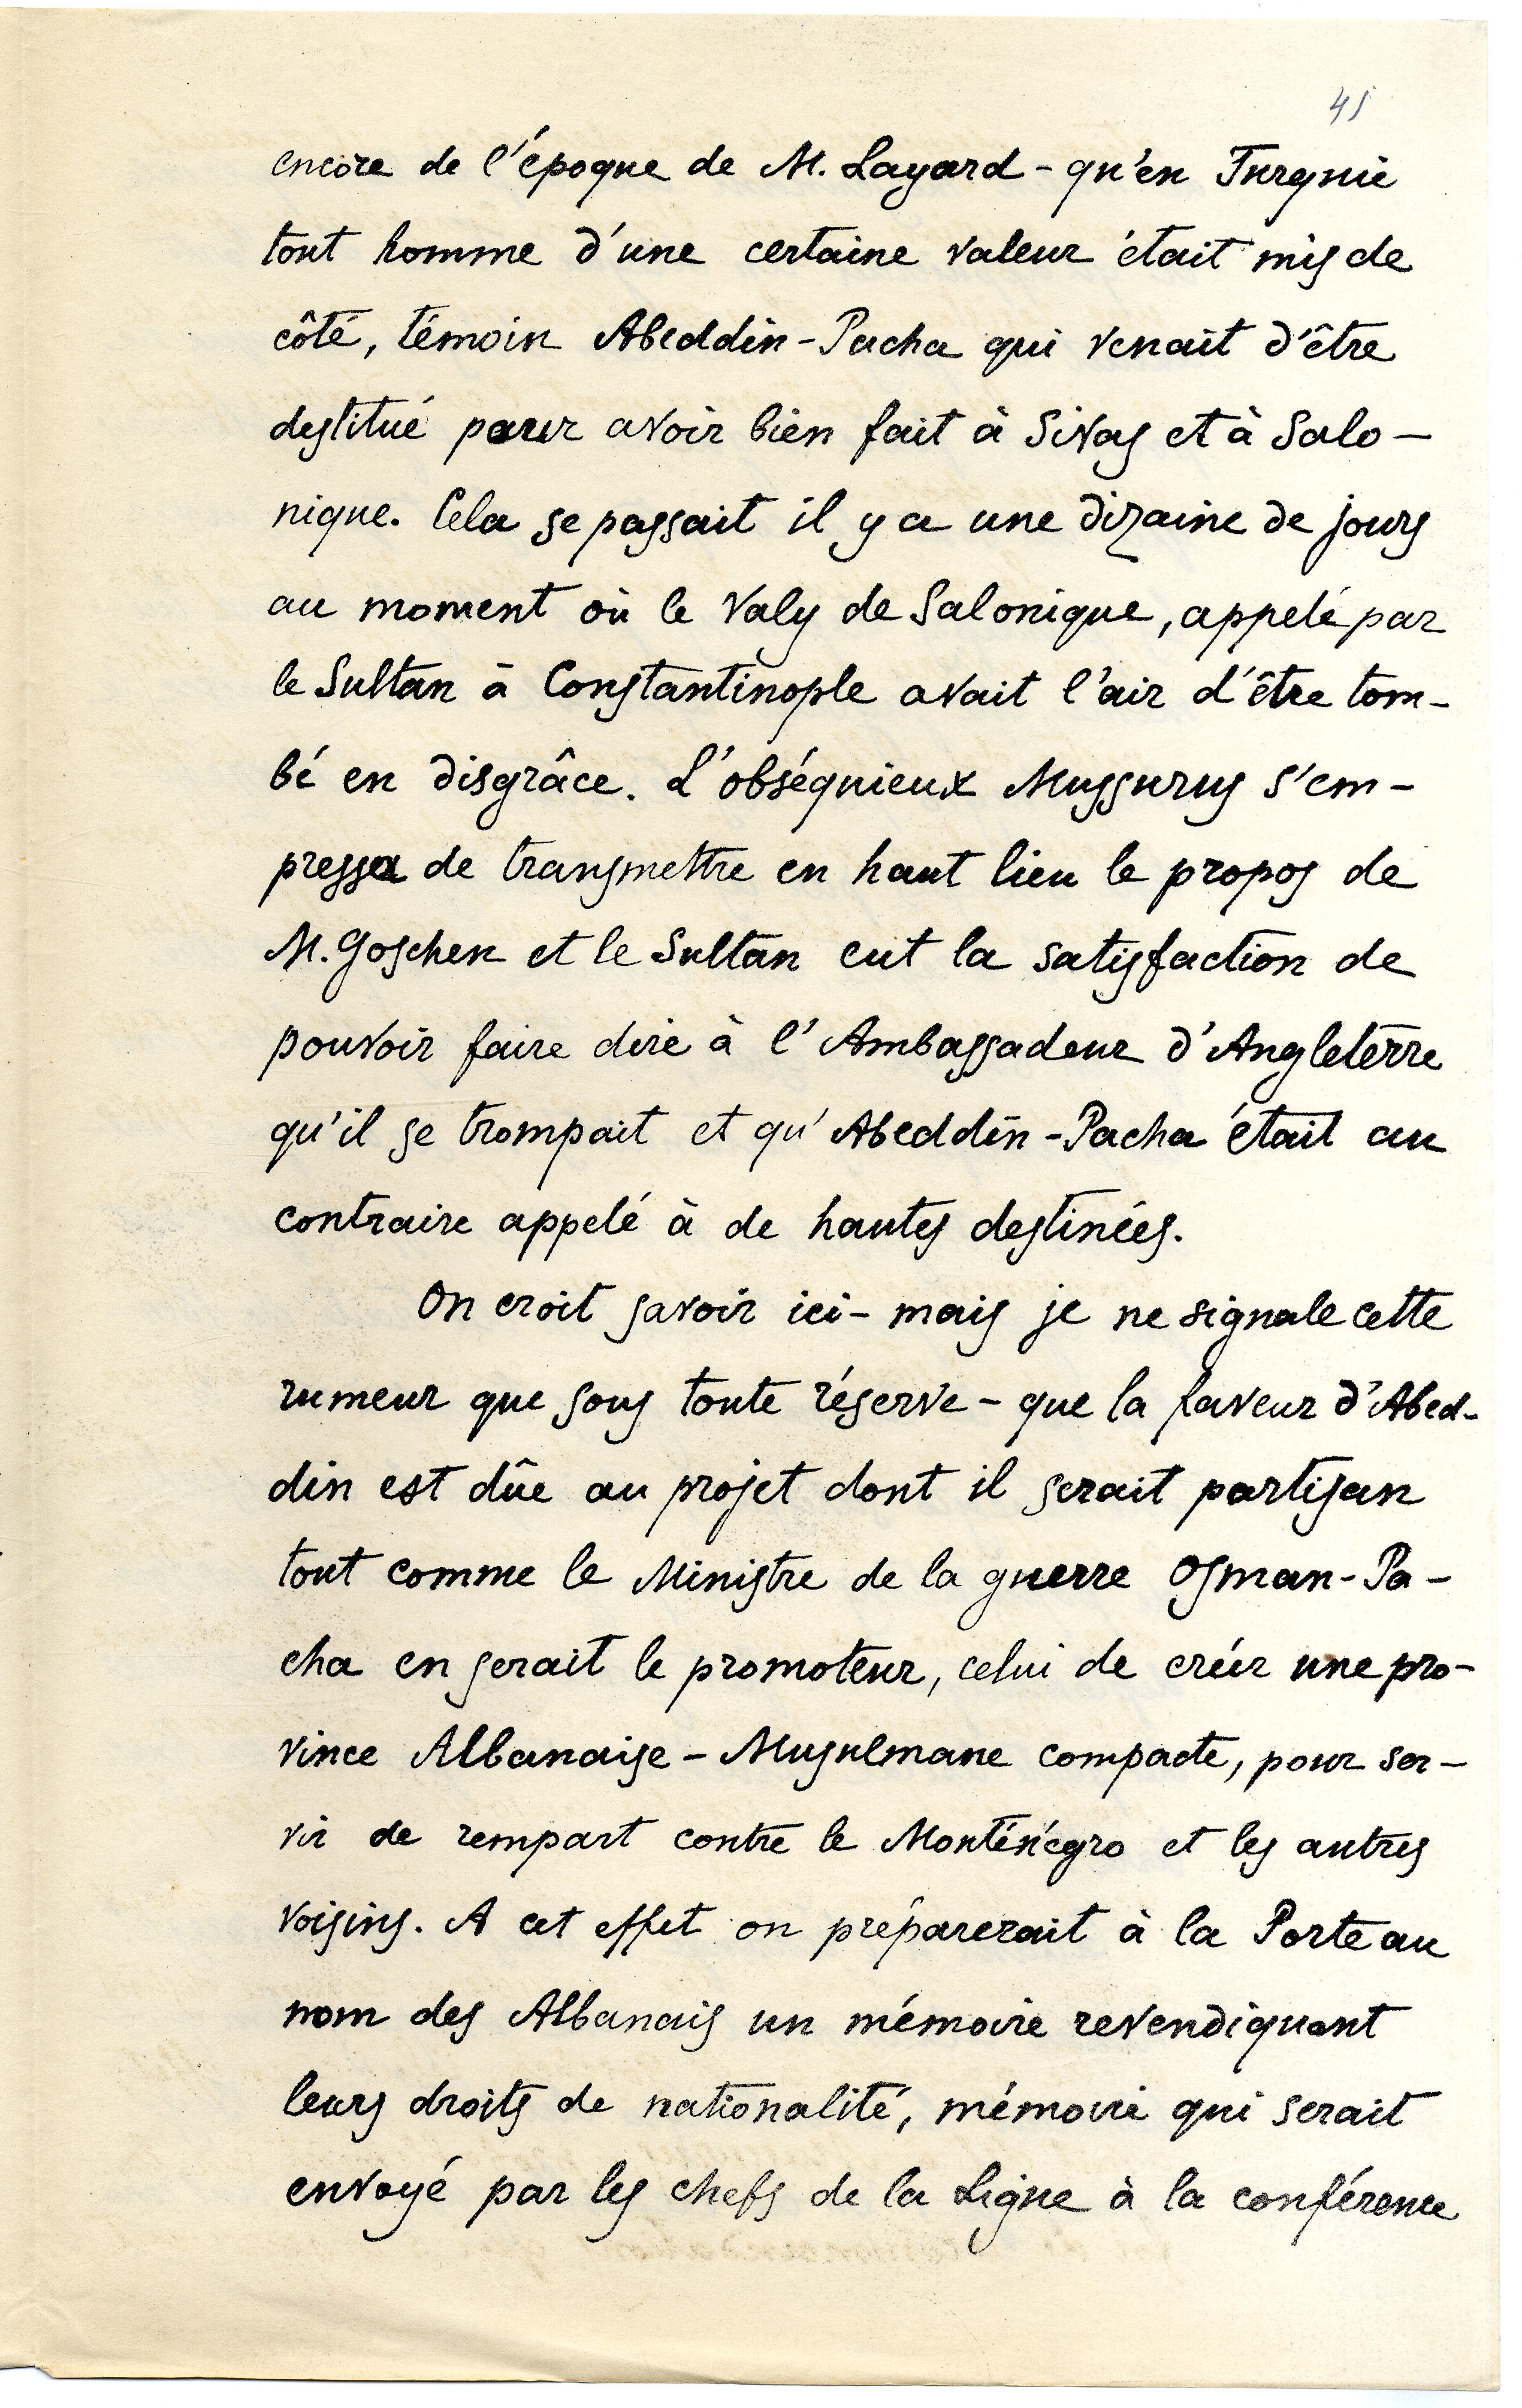 45
encore de l'époque de M. Layard - qu'en Turquie
tout homme d'une certaine valeur était mis de
côté, témoin Abeddin-Pacha qui venait d'être
destitué pour avoir bien fait à Sivas et à Salo-
nique. Cela se passait il y a une dizaine de jours
au moment où le Valy de Salonique, appelé par
le Sultan à Constantinople avait l'air d'être tom-
bé en disgrâce. L'obséquieux Mussurus s'em-
pressa de transmettre en haut lieu le propos de
M. Goschen et le Sultan eut la satisfaction de
pouvoir faire dire à l'Ambassadeur d'Angleterre
qu'il se trompait et qu'Abeddin-Pacha était au
contraire appelé à de hautes destinées.
On croit savoir ici - mais je ne signale cette
rumeur que sous toute réserve - que la faveur d'Abed-
din est dûe au projet dont il serait partisan
tout comme le Ministre de la guerre Osman-Pa-
cha en serait le promoteur, celui de créer une pro-
vince Albanaise - Musulmane compacte, pour ser-
vir de rempart contre le Monténégro et les autres
voisins. A cet effet on préparerait à la Porte au
nom des Albanais un mémoire revendiquant
leurs droits de nationalité, mémoire qui serait
envoyé par les chefs de la Ligue à la conférence